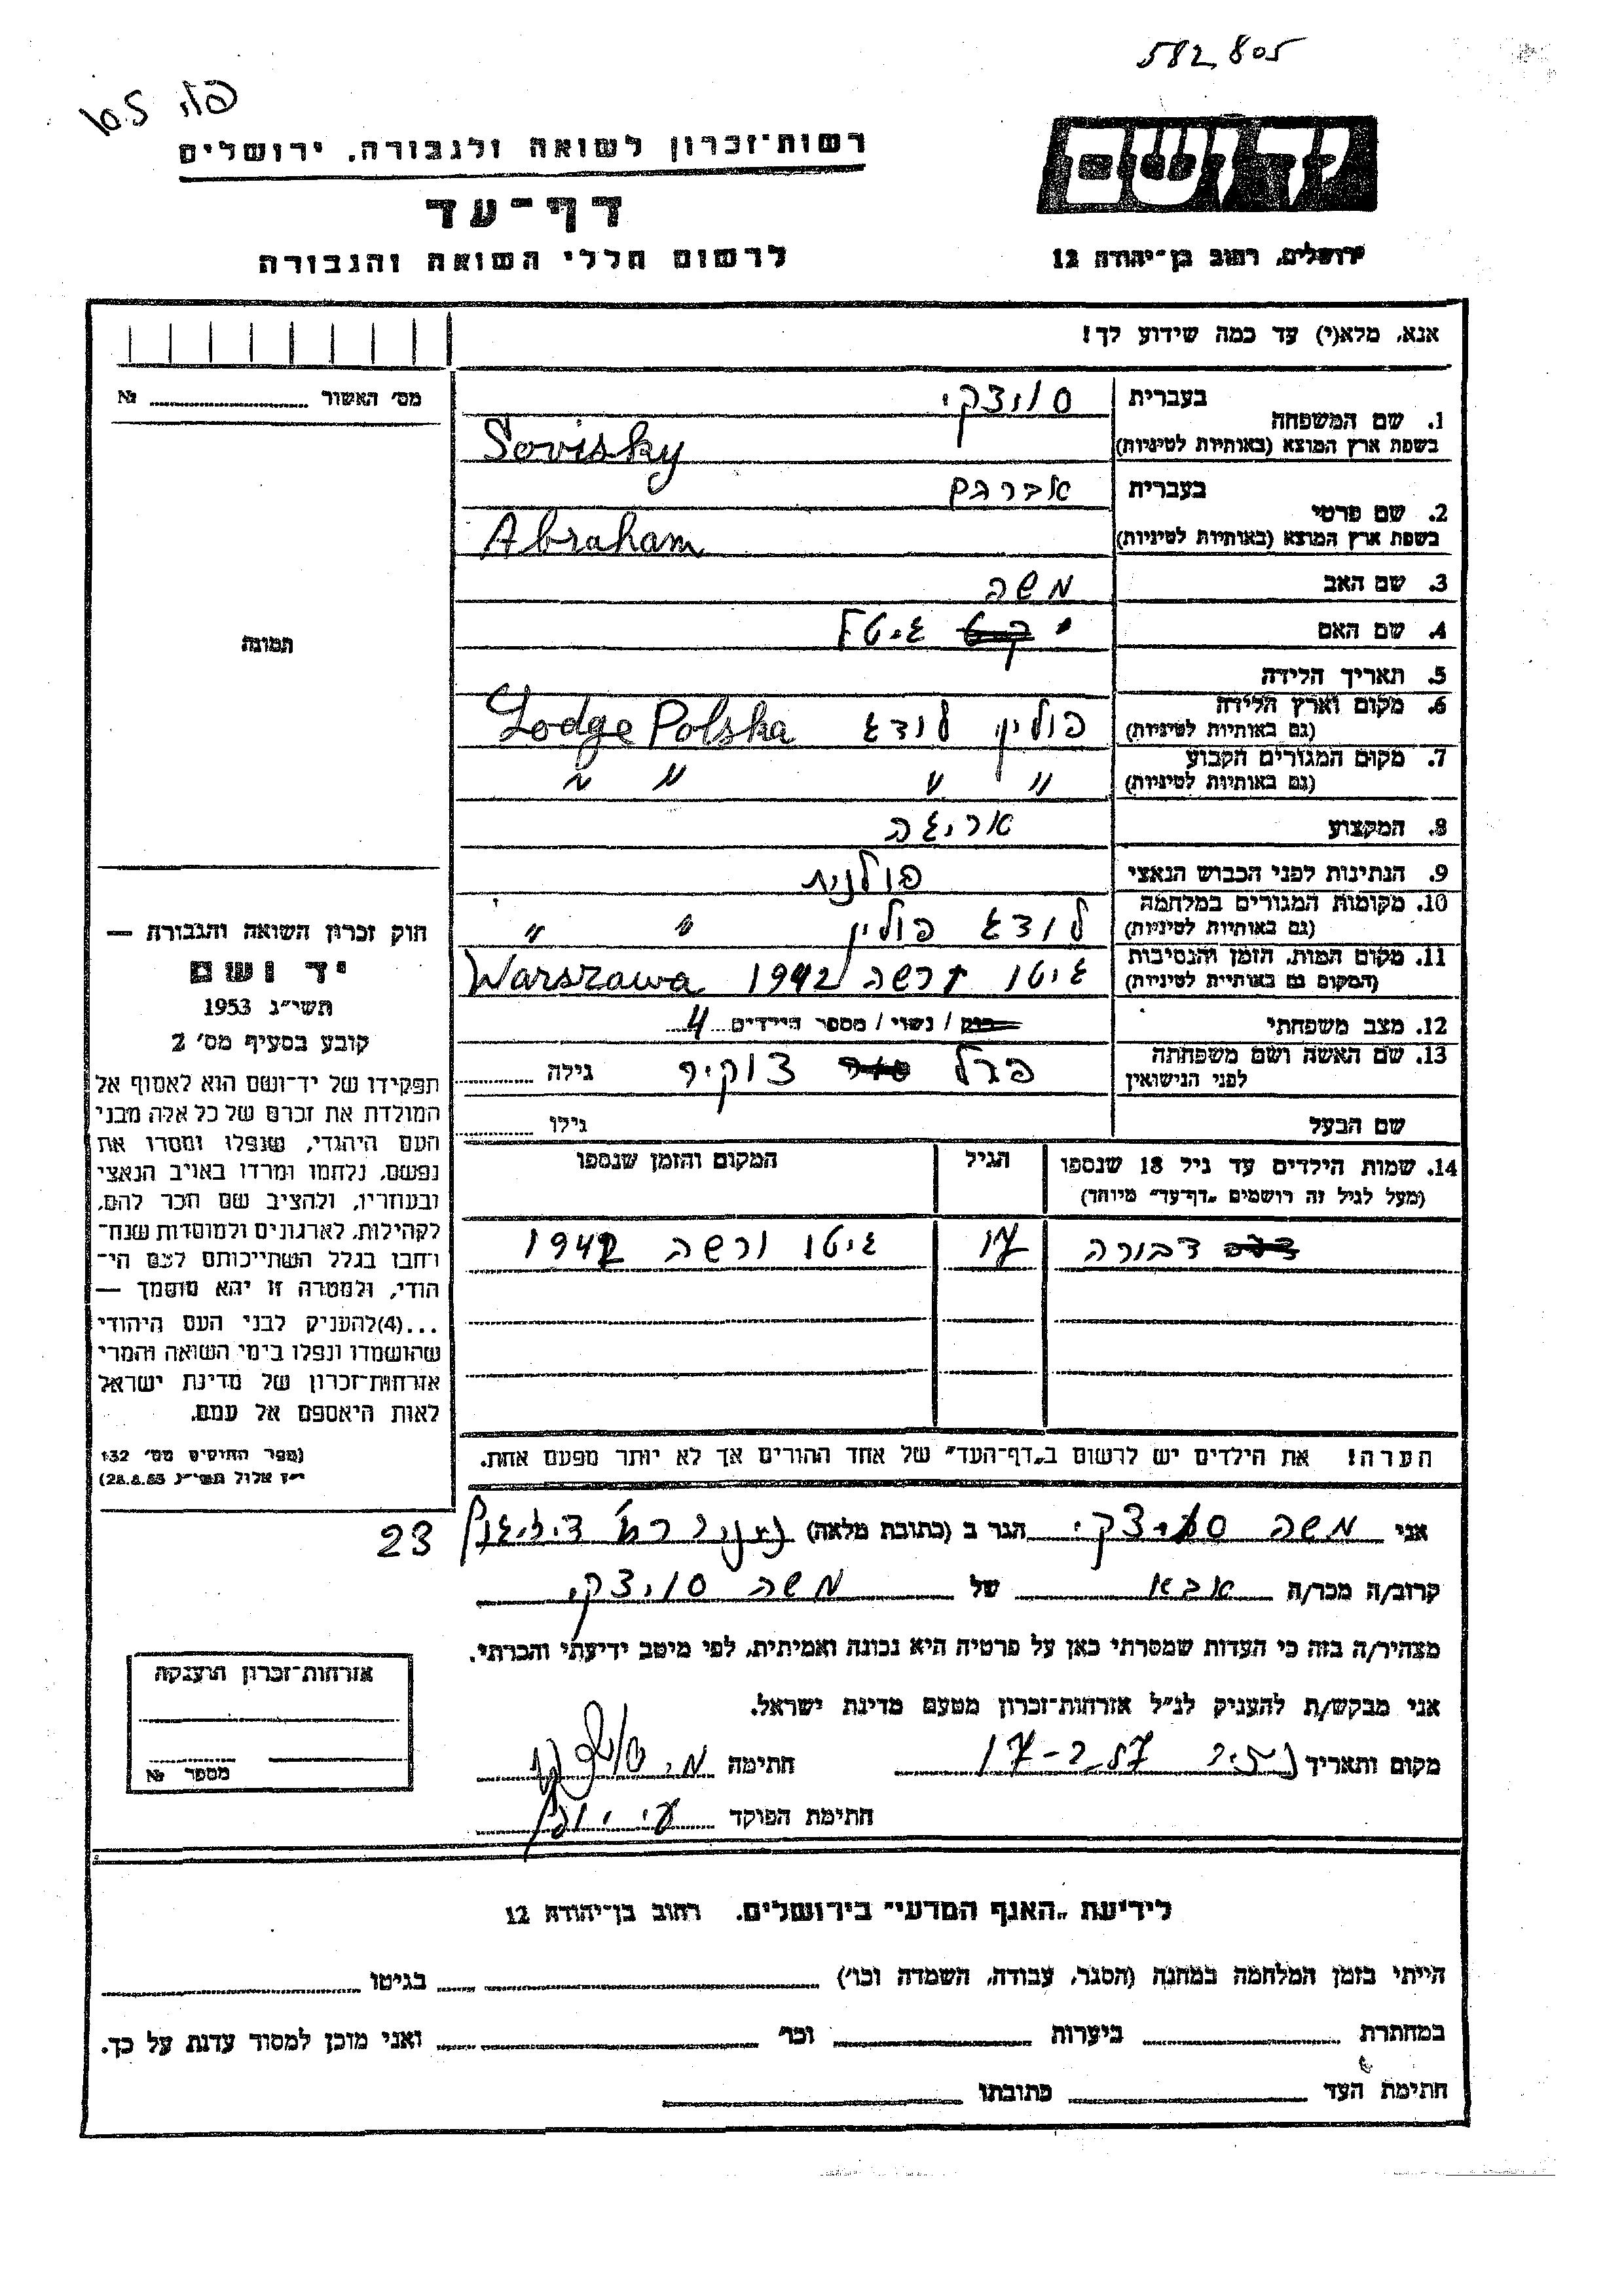 582,805
יד ושם
רשות־זכרון לשואה ולגבורה, ירושלים
דף־עד
לרשום חללי השואה והגבורה
ירושלים, רחוב בן־יהודה 12
אנא, מלא(י) עד כמה שידוע לך!
מס' האשור № 
1. שם המשפחה בעברית סויצקי
בשפת ארץ המוצא (באותיות לטיניות) Sovisky
2. שם פרטי בעברית אברהם
בשפת ארץ המוצא (באותיות לטיניות) Abraham
3. שם האב משה
4. שם האם גיטל
5. תאריך הלידה
6. מקום וארץ הלידה (גם באותיות לטיניות) פולין לודג Lodge Polska
7. מקום המגורים הקבוע (גם באותיות לטיניות) " " " "
8. המקצוע אריגה
9. הנתינות לפני הכבוש הנאצי פולנית
10. מקומות המגורים במלחמה (גם באותיות לטיניות) לודג פולין " "
11. מקום המות, הזמן והנסיבות (המקום גם באותיות לטיניות) גיטו ורשה 1942 Warszawa
12. מצב משפחתי רווק / נשוי / מספר הילדים 4
13. שם האשה ושם משפחתה לפני הנישואין פרל צוקיר גילה
שם הבעל גילו
14. שמות הילדים עד גיל 18 שנספו הגיל המקום והזמן שנספו
(מעל לגיל זה רושמים "דף־עד" מיוחד)
דבורה 17 גיטו ורשה 1942
הערה! את הילדים יש לרשום ב"דף־העד" של אחד ההורים אך לא יותר מפעם אחת.
תמונה
חוק זכרון השואה והגבורה —
יד ושם
תשי״ג 1953
קובע בסעיף מס' 2
תפקידו של יד־ושם הוא לאסוף אל
המולדת את זכרם של כל אלה מבני
העם היהודי, שנפלו ומסרו את
נפשם, נלחמו ומרדו באויב הנאצי
ובעוזריו, ולהציב שם וזכר להם,
לקהילות, לארגונים ולמוסדות שנח־
רחבו בגלל השתייכותם לעם הי־
הודי, ולמטרה זו יהא מוסמך —
...(4)להעניק לבני העם היהודי
שהושמדו ונפלו בימי השואה והמרי
אזרחות־זכרון של מדינת ישראל
לאות היאספם אל עמם.
(ספר החוקים מס' 132
י״ז אלול תשי״ג 28.8.53)
אני משה סויצקי הגר ב (כתובת מלאה) 23
קרוב/ה מכר/ה אבא של משה סויצקי
מצהיר/ה בזה כי העדות שמסרתי כאן על פרטיה היא נכונה ואמיתית, לפי מיטב ידיעתי והכרתי.
אני מבקש/ת להעניק לנ״ל אזרחות־זכרון מטעם מדינת ישראל.
מקום ותאריך 17-2.57 חתימה
חתימת הפוקד
אזרחות־זכרון הוענקה
מספר №
לידיעת "האגף המדעי" בירושלים, רחוב בן־יהודה 12
הייתי בזמן המלחמה במחנה (הסגר, עבודה, השמדה וכו') בגיטו
במחתרת ביערות וכו' ואני מוכן למסור עדות על כך.
חתימת העד כתובתו